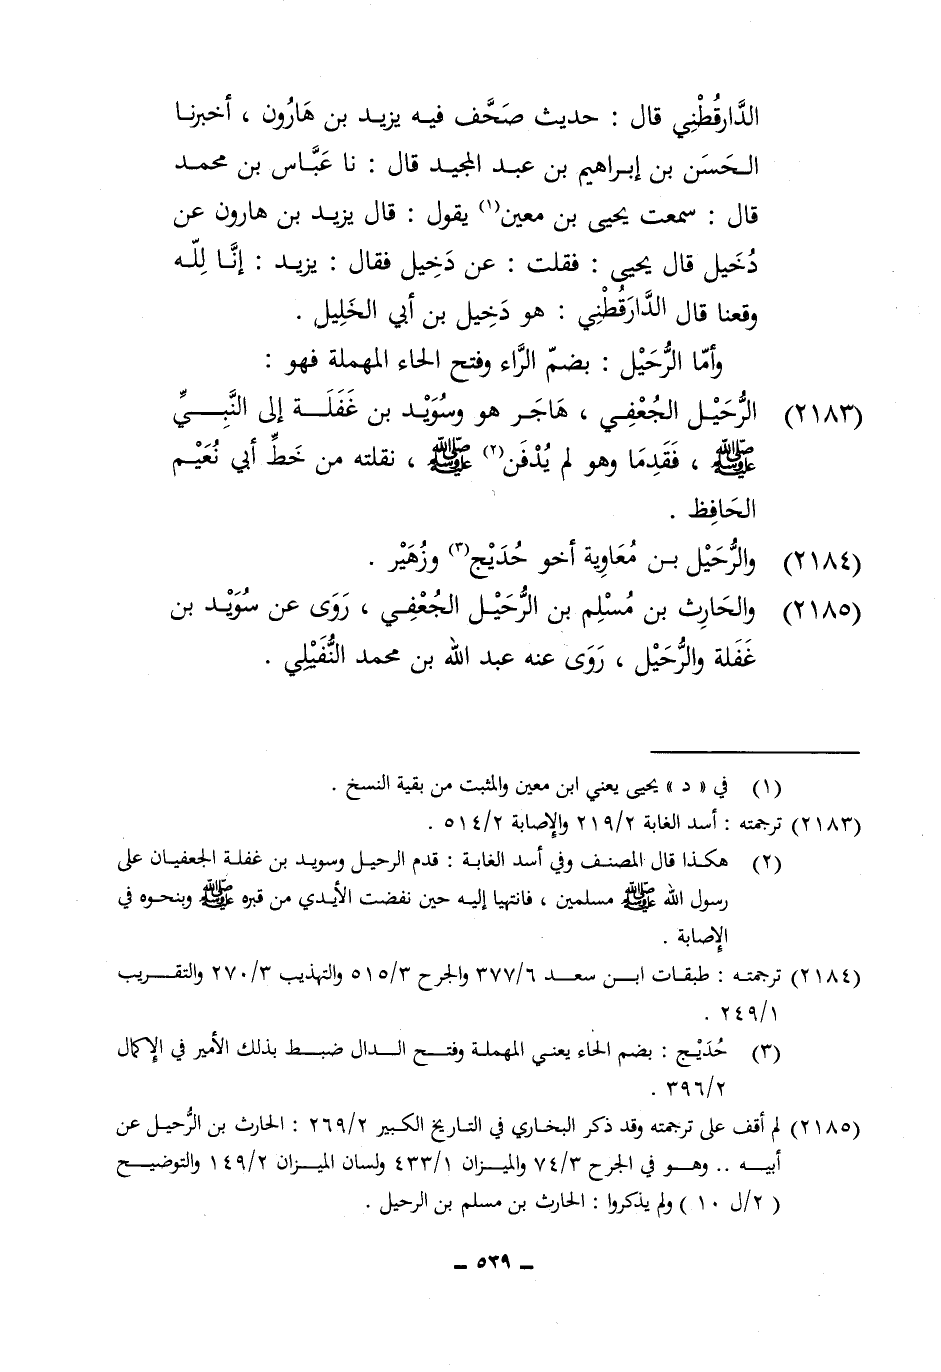 الدَّارقُطْنِي قال : حديث صَحَّف فيه يزيد بن هَارُون ، أخبرنا
الحَسَن بن إبراهيم بن عبد المجيد قال : نا عَبَّاس بن محمد
قال : سمعت يحيى بن معين(١) يقول : قال يزيد بن هارون عن
دُخَيل قال يحيى : فقلت : عن دَخِيل فقال : يزيد : إنَّا لِلّه
وقعنا قال الدَّارَقُطْنِي : هو دَخِيل بن أبي الخَلِيل .
وأمّا الرُّحَيْل : بضمّ الرَّاء وفتح الحاء المهملة فهو :
(٢١٨٣) الرُّحَيْل الجُعْفِي ، هَاجَر هو وسُوَيْد بن غَفَلَة إلى النَّبِيِّ
ﷺ ، فَقَدِمَا وهو لم يُدْفَن(٢) ﷺ ، نقلته من خَطِّ أبي نُعَيْم
الحَافِظ .
(٢١٨٤) والرُّحَيْل بن مُعَاوِية أخو حُدَيْج(٣) وزُهَيْر .
(٢١٨٥) والحَارِث بن مُسْلِم بن الرُّحَيْل الجُعْفِي ، رَوَى عن سُوَيْد بن
غَفَلة والرُّحَيْل ، رَوَى عنه عبد الله بن محمد النُّفَيْلِي .
(١) في « د » يحيى يعني ابن معين والمثبت من بقية النسخ .
(٢١٨٣) ترجمته : أسد الغابة ٢١٩/٢ والإصابة ٥١٤/٢ .
(٢) هكذا قال المصنف وفي أسد الغابة : قدم الرحيل وسويد بن غفلة الجعفيان على
رسول الله ﷺ مسلمين ، فانتهيا إليه حين نفضت الأيدي من قبره ﷺ وبنحوه في
الإصابة .
(٢١٨٤) ترجمته : طبقات ابن سعد ٣٧٧/٦ والجرح ٥١٥/٣ والتهذيب ٢٧٠/٣ والتقريب
٢٤٩/١ .
(٣) حُدَيْج : بضم الحاء يعني المهملة وفتح الدال ضبط بذلك الأمير في الإكمال
٣٩٦/٢ .
(٢١٨٥) لم أقف على ترجمته وقد ذكر البخاري في التاريخ الكبير ٢٦٩/٢ : الحارث بن الرُّحيل عن
أبيه .. وهو في الجرح ٧٤/٣ والميزان ٤٣٣/١ ولسان الميزان ١٤٩/٢ والتوضيح
( ٢/ل ١٠ ) ولم يذكروا : الحارث بن مسلم بن الرحيل .
ـ ٥٣٩ ـ